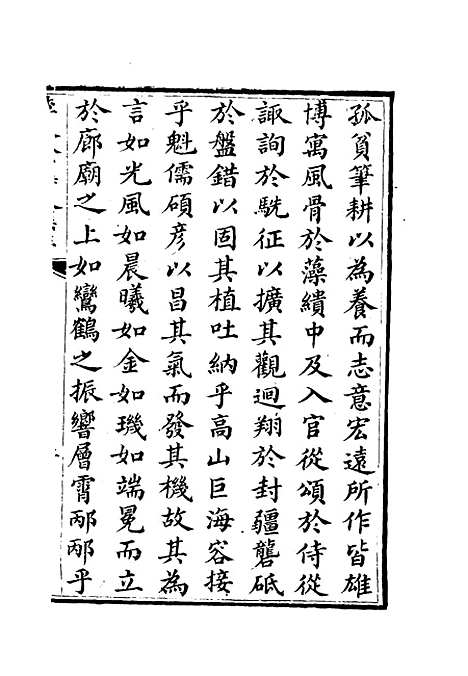 孤貧筆耕以為養而志意宏遠所作皆雄
博寓風骨於藻繢中及入官從頌於侍從
諏詢於駪征以擴其觀迴翔於封疆礱砥
於盤錯以固其植吐納乎高山巨海容接
乎魁儒碩彦以昌其氣而發其機故其為
言如光風如晨曦如金如璣如端冕而立
於廊廟之上如鸞鶴之振響層霄郁郁乎